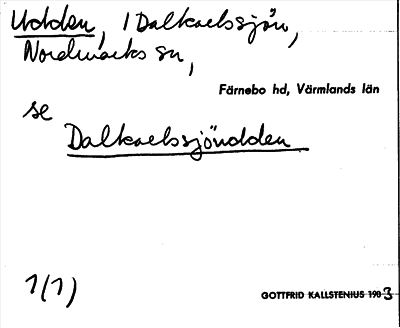 Udden, i Dalkarlssjön,
Nordmarks sn,
Färnebo hd, Värmlands län
se
Dalkarlssjöudden
1(1)
GOTTFRID KALLSTENIUS 1903